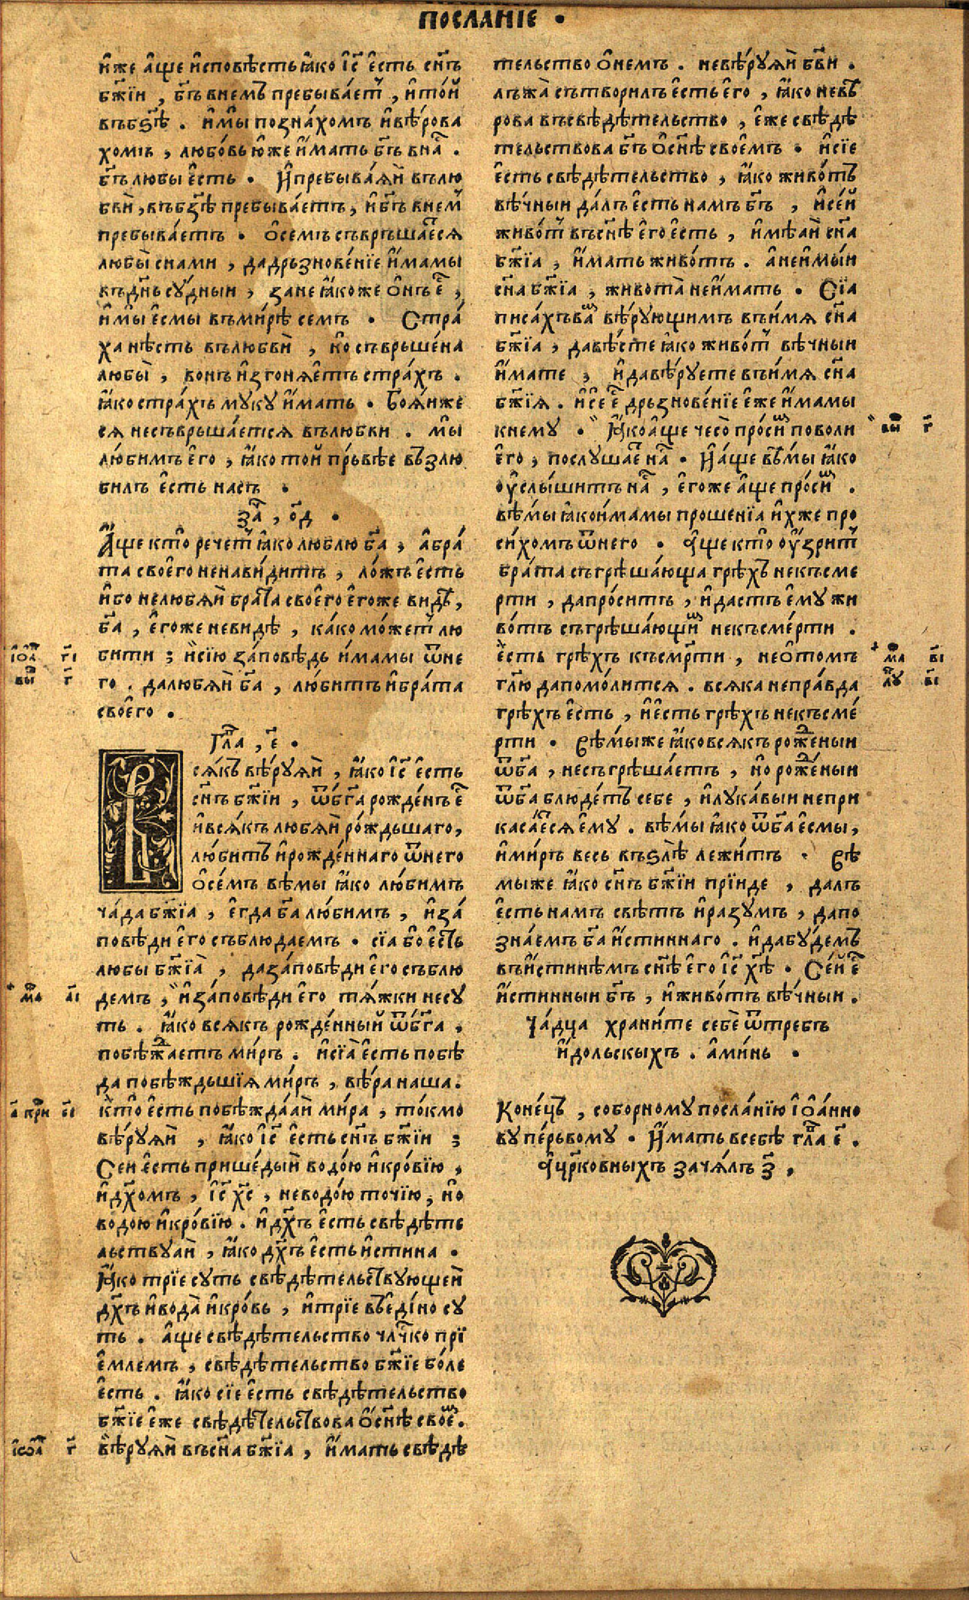 ПОСЛАНІЕ •
и҆́же а҆́ще и҆сповѣ́сть ꙗ҆́ко і҆с҃ є҆́сть сн҃ъ
бж҃їи , бг҃ъ внемъ пребыва́етъ , и҆то́й
въбѕ҃ѣ . и҆мы̀ позна́хомъ и҆вѣ́рова
хомъ , любо́вь ю҆́же и҆́мать бг҃ъ вна́с .
бг҃ъ любы є҆́сть • И҆пребыва́ѧй вълю
бвѝ , въбз҃ѣ пребыва́етъ , и҆бг҃ъ внем
пребыва́етъ • ѻ҆семъ съвръша́еся
любы̀ снами , дадръзнове́нїе и҆́мамы
въдн҃ь су́дныи , зане ꙗ҆́коже ѻ҆́нъ є҆ ,
и҆мы̀ є҆смы въми́рѣ семъ • Стра́
ха нѣ́сть вълюбвѝ , но съвръше́на
любы̀ , вонъ и҆згонѧ́етъ стра́хъ .
ꙗ҆́ко стра́хъ муку и҆́мать • Боѧ́иже
сѧ несъвръша́етсѧ вълюбви . мы̀
лю́бимъ е҆го , ꙗ҆́ко той пръвѣе възлю
билъ є҆сть насъ .
за҃ , о҃д •
А҆́ще кто̀ рече́тъ ꙗ҆́ко люблю̀ ба҃ , а҆бра́
та своего̀ ненави́дитъ , ло́жъ є҆сть
и҆́бо нелюбѧ́й бра́та своего̀ є҆го́же видѣ ,
ба҃ , є҆го́же невидѣ , ка́ко мо́жетъ лю
бити ; и҆сїю̀ за́повѣдь и҆́мамы ѿне
го . далюбѧ́й ба҃ , лю́битъ и҆бра́та
своего̀ .
Гла҃ , є҃ .
Всѧ́къ вѣ́руѧй , ꙗ҆́ко і҆с҃ є҆́сть
сн҃ъ бж҃їи , ѿбг҃а рожде́нъ є҆
и҆всѧ́къ любѧ́й ро́ждьшаго ,
лю́битъ и҆рожде́ннаго ѿнего
ѻ҆се́мъ вѣ́мы ꙗ҆́ко лю́бимъ
ча́да бж҃їа , є҆гда̀ ба҃ лю́бимъ , и҆за́
повѣди є҆го съблюдаемъ • сїа̀ бо є҆́сть
любы бж҃їа̀ , даза́повѣди є҆го съблю
демъ , и҆за́повѣди є҆го тѧ́жки несу
ть . ꙗ҆́ко всѧ́къ рожде́нный ѿбг҃а ,
побѣжа́етъ ми́ръ . и҆сїа̀ є҆сть побѣ
да побѣждьшїѧ ми́ръ , вѣ́ра наша .
кто̀ є҆сть побѣжда́ай ми́ра , то́кмо
вѣ́руѧй , ꙗ҆́ко і҆с҃ є҆сть сн҃ъ бж҃їи ;
Сеи є҆сть прише́дый водо́ю и҆кро́вїю ,
и҆дх҃омъ , і҆с҃ хс҃ , неводо́ю точїю , но
водою и҆кро́вїю . и҆дх҃ъ є҆сть свѣдѣте
льствуай , ꙗ҆́ко дх҃ъ є҆сть и҆́стина .
Ꙗ҆́ко трїе суть свѣдѣтельствующеи
дх҃ъ и҆вода̀ и҆кро́вь , и҆трїе въеди́но су
ть . а҆́ще свѣдѣтельство чл҃чко прї
е́млемъ , свѣдѣтельство бж҃їе бо́ле
є҆сть . ꙗ҆́ко сїе є҆сть свѣдѣтельство
бж҃їе є҆́же свѣдѣтельствова ѻ҆сн҃ѣ свое .
вѣ́руѧй въсн҃а бж҃їа , и҆́мать свѣдѣ
тельство ѻ҆немъ . невѣ́руѧй бг҃ви .
лъжа̀ сътвори́лъ є҆сть его , ꙗ҆́ко невѣ
рова въсвѣдѣтельство , є҆́же свѣдѣ
тельствова бг҃ъ ѻ҆сн҃ѣ своемъ • и҆сїе
є҆сть свѣдѣтельство , ꙗ҆́ко живо́тъ
вѣ́чныи да́лъ є҆сть намъ бг҃ъ , и҆се́й
живо́т въсн҃ѣ є҆го є҆сть , и҆мѣ́аи сн҃а
бж҃їа , и҆́мать живо́тъ . а҆неимы́и
сн҃а бж҃їа , живота̀ неи҆́мать • Сїа
писа́хъва вѣ́рующимъ въи҆мѧ сн҃а
бж҃їа , давѣ́сте ꙗ҆́ко живо́т вѣ́чныи
и҆́мате , и҆давѣ́руете въи҆мѧ сн҃а
бж҃їѧ . и҆се є҆ дръзнове́нїе є҆́же и҆́мамы
кнему • Ꙗ҆́коа҆́ще чесо̀ про́сим поволи
є҆го , послуша́е на • И҆а҆́ще вѣ́мы ꙗ҆́ко
ѹ҆слы́шитъ на , є҆гоже а҆́ще про́сим .
вѣ́мы ꙗ҆́ко и҆мамы прошенїа и҆́хже про
си́хомъ ѿнего • А҆́ще кто̀ ѹ҆́зрит
бра́та съгрѣша́юща грѣ́хъ некъсме
рти , дапро́ситъ , и҆дастъ є҆му жи
во́тъ съгрѣша́ющим некъсме́рти .
є҆сть грѣ́хъ късмрти , неѻ҆томъ
гл҃ю дапомо́литсѧ . всѧка непра́вда
грѣ́хъ є҆сть , и҆єсть грѣ́хъ некъсме́
рти • Вѣ́мыже ꙗ҆́ковсѧ́къ роже́ныи
ѿба҃ , несъгрѣша́етъ , но роже́ныи
ѿба҃ блюде́тъ себе , и҆лука́выи непри
каса́есѧ є҆му . вѣ́мы ꙗ҆́ко ѿба҃ є҆смы ,
и҆ми́ръ весь въѕлѣ̀ лежи́тъ • Вѣ
мыже ꙗ҆́ко сн҃ъ бж҃їи прїиде , далъ
є҆сть намъ свѣтъ и҆ра́зумъ , дапо
зна́емъ ба҃ и҆́стиннаго . и҆дабу́демъ
въи҆́стинѣмъ сн҃ѣ є҆го і҆с҃ хѣ҃ • Се́й є҆
и҆́стинныи бг҃ъ , и҆живо́тъ вѣ́чныи .
Ча́дца храни́те себѐ ѿтребъ
и҆́дольскыхъ . а҆ми́нь .
Коне́цъ , соборному посла́нїю і҆ѡ҆́анно
ву пе́рьвому • И҆́мать всебѣ̀ гла҃ є҃ .
А҆цр҃ковныхъ зача́лъ з҃ ,
і҆ѡа҃ г҃і
вы г҃
мѳ а҃і
а҃ кри є҃і
і҆ѡа҃ г҃
вы г҃
мѳ в҃і
лу в҃і